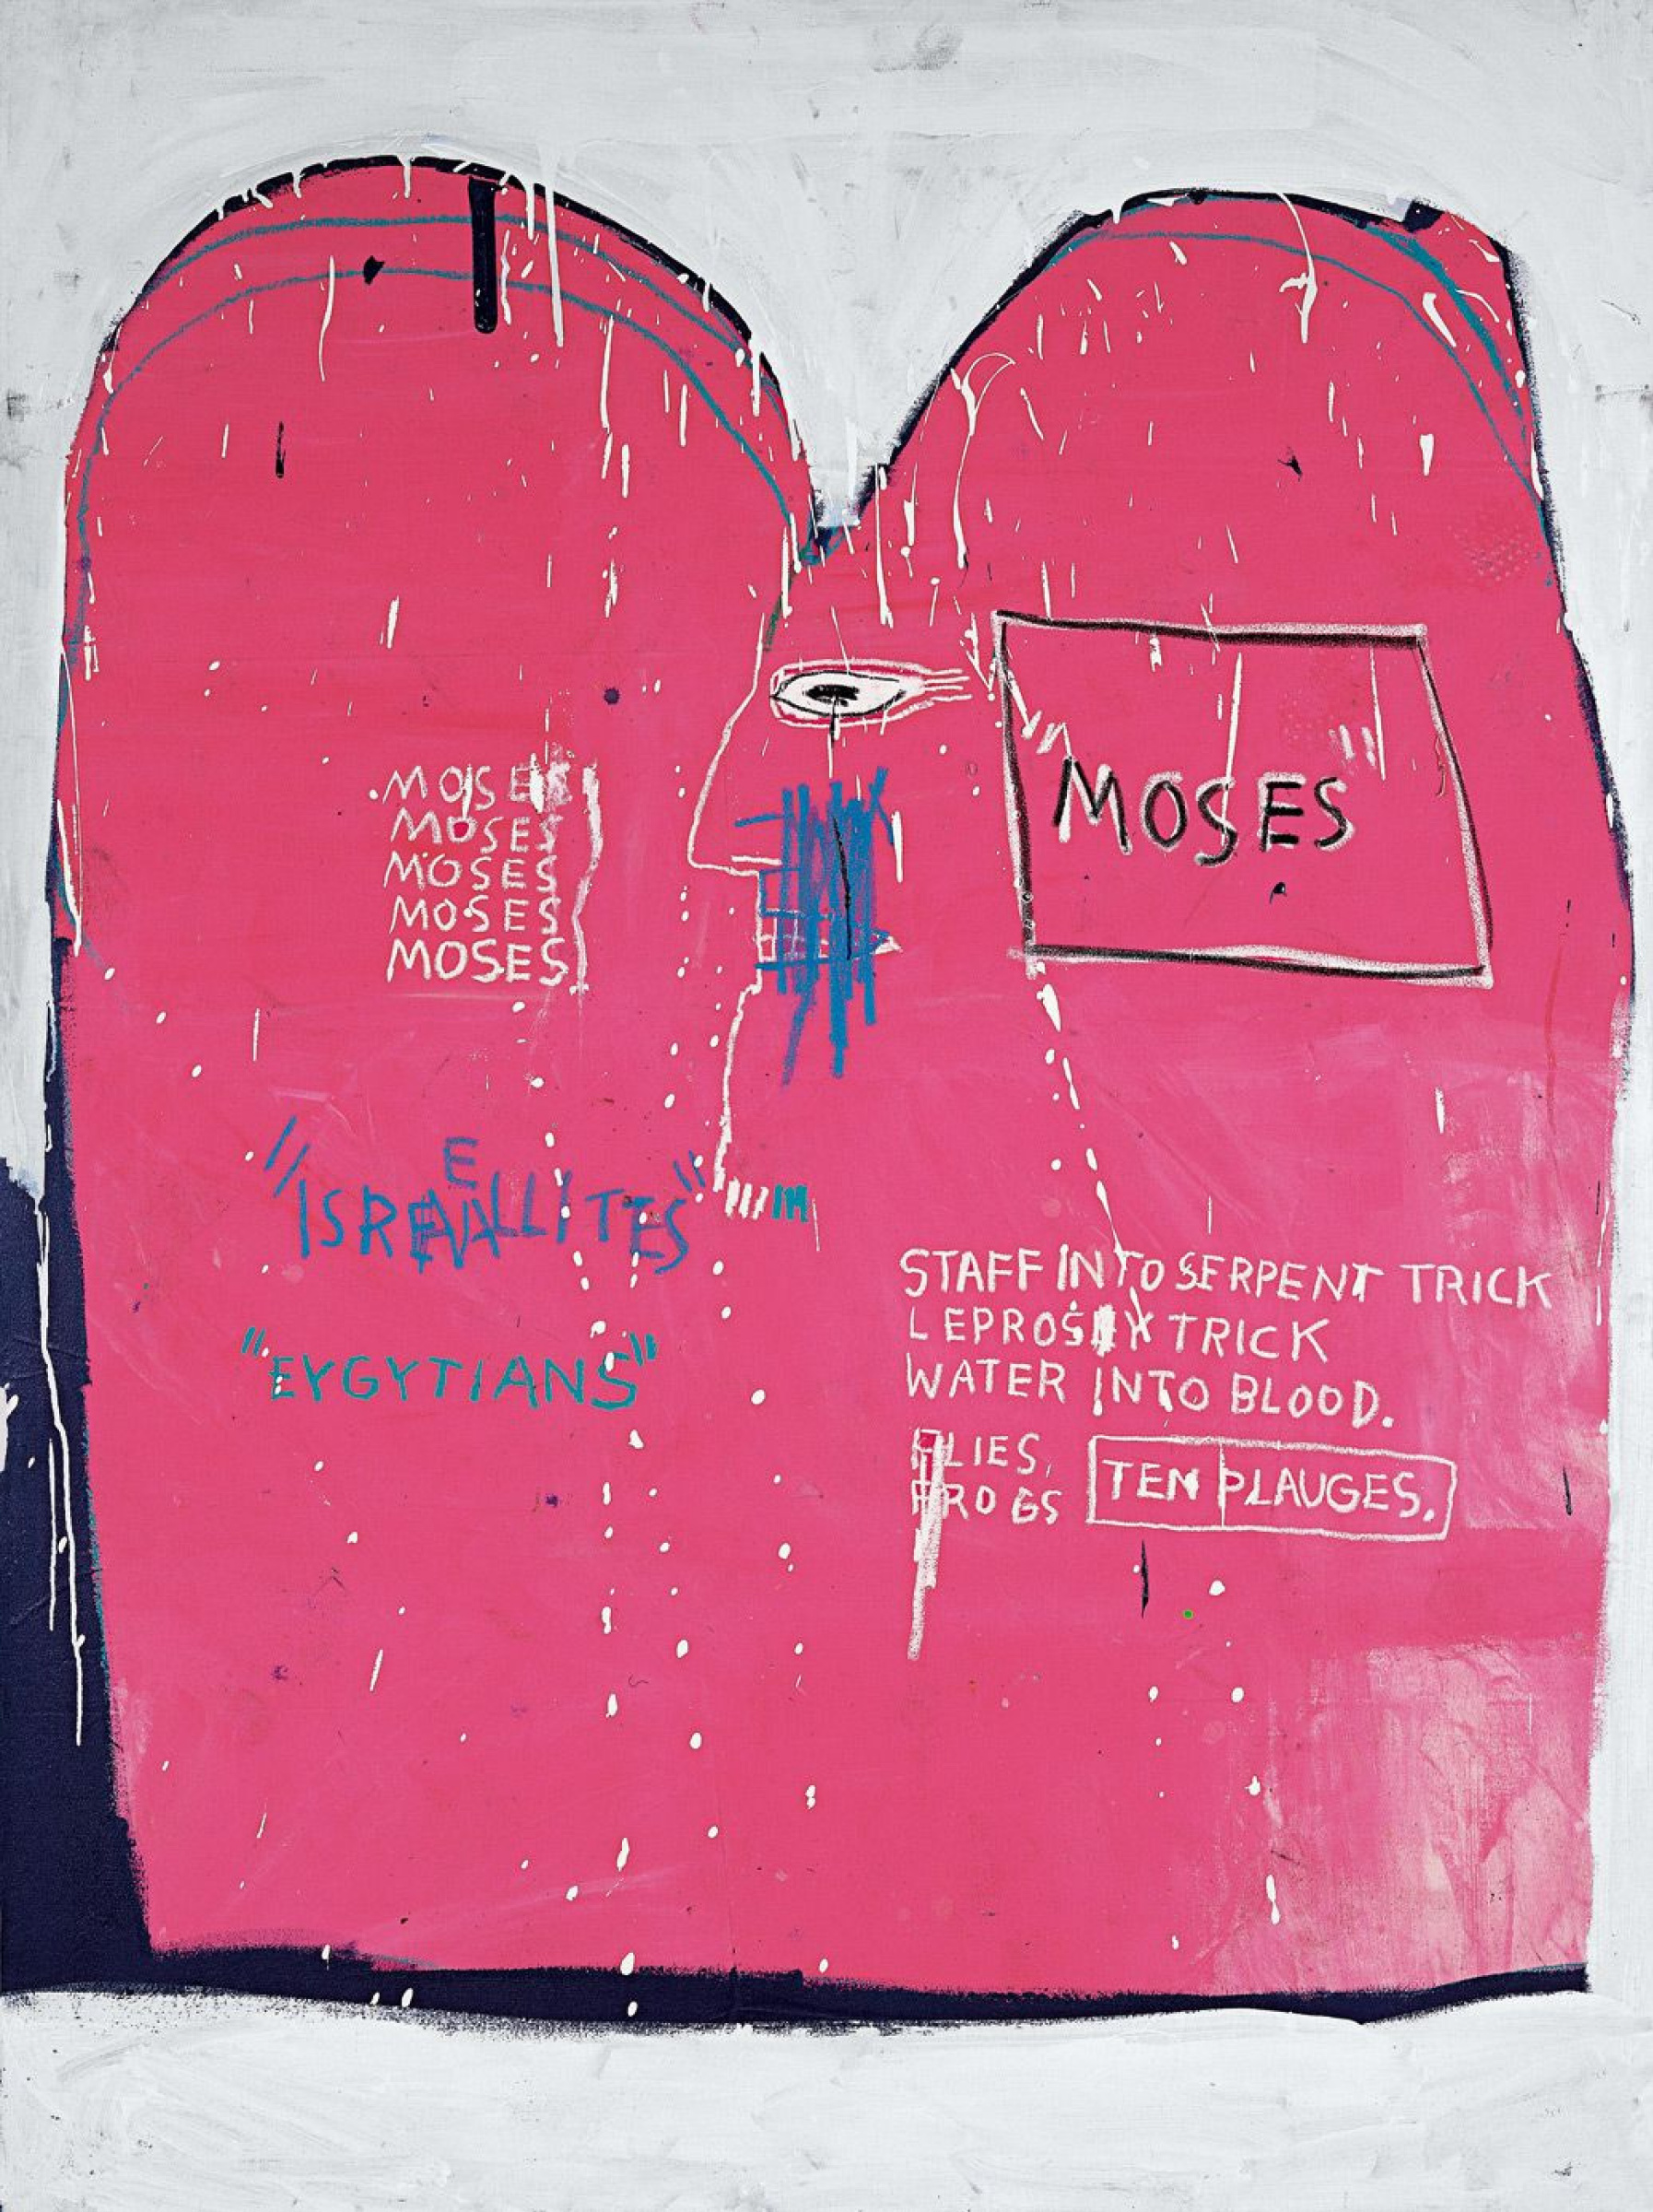 MOSES
MOSES
MOSES
MOSES
MOSES
"MOSES"
"ISREALLITES"
E
"EYGYTIANS"
STAFF INTO SERPENT TRICK
LEPROSY TRICK
WATER INTO BLOOD.
FLIES,
FROGS
TEN PLAUGES.